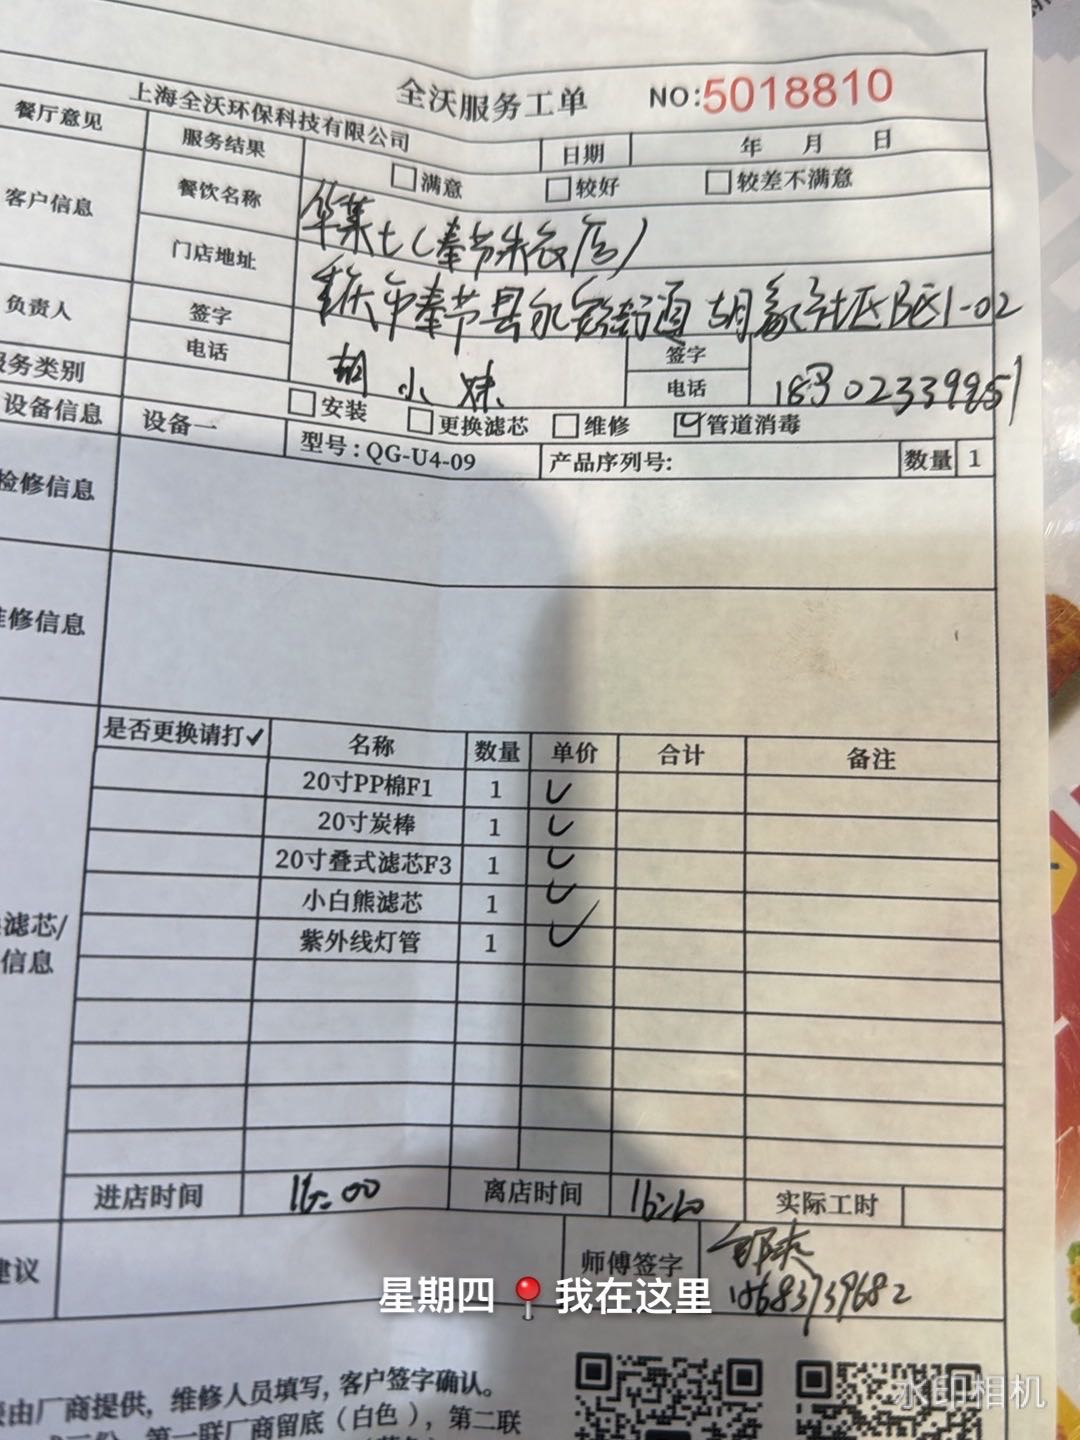 全沃服务工单 NO:5018810
上海全沃环保科技有限公司 日期 年 月 日
餐厅意见 服务结果 满意 较好 较差不满意
客户信息 餐饮名称 华莱士(奉节朱衣店)
门店地址 重庆市奉节县永安街道胡家社区B区1-02
负责人 签字 胡小妹 签字
电话 电话
务类别 安装 更换滤芯 维修 管道消毒
设备信息 设备一 型号:QG-U4-09 产品序列号: 数量 1
检修信息
修信息
是否更换请打✓ 名称 数量 单价 合计 备注
20寸PP棉F1 1 ✓
20寸炭棒 1 ✓
20寸叠式滤芯F3 1 ✓
小白熊滤芯 1 ✓
紫外线灯管 1 ✓
滤芯/
信息
进店时间 16:00 离店时间 实际工时
建议 师傅签字
星期四 我在这里
由厂商提供,维修人员填写,客户签字确认。
第一联厂商留底(白色),第二联
水印相机